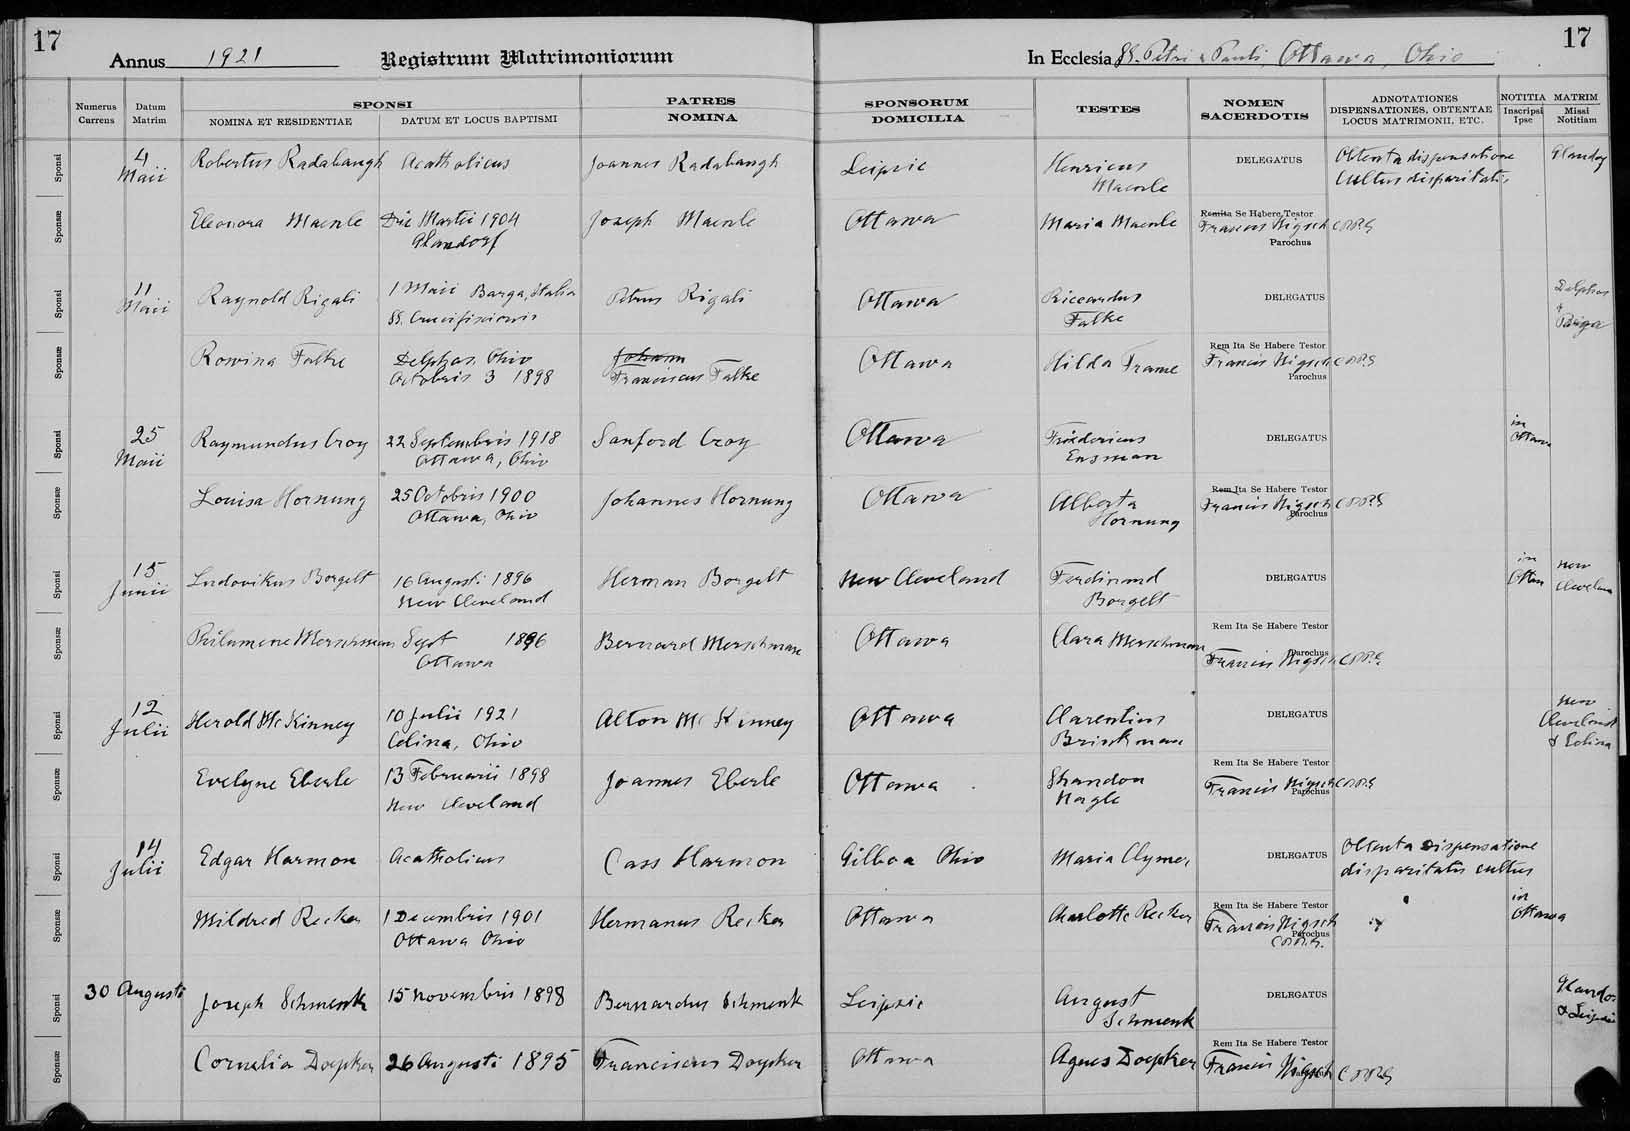 17
Annus 1921 Registrum Matrimoniorum
In Ecclesia SS. Petri & Pauli, Ottawa, Ohio
17
Numerus Currens
Datum Matrim
SPONSI
NOMINA ET RESIDENTIAE
DATUM ET LOCUS BAPTISMI
PATRES NOMINA
SPONSORUM DOMICILIA
TESTES
NOMEN SACERDOTIS
ADNOTATIONES
DISPENSATIONES, OBTENTAE
LOCUS MATRIMONII, ETC.
NOTITIA MATRIM
Inscripsi Ipse
Missi Notitiam
Sponsi 4 Maii Robertus Radabaugh Acatholicus Joannes Radabaugh Leipsic Henricus Maenle DELEGATUS Obtenta dispensatione Cultus disparitatis
Sponsæ Eleonora Maenle Die Martii 1904 Glandorf Joseph Maenle Ottawa Maria Maenle Rem ita Se Habere Testor Francis Nigsch C.PP.S Parochus
Sponsi 11 Maii Raynold Rigali 1 Maii Barga, Italia SS. Crucifixionis Petrus Rigali Ottawa Riccardus Falke DELEGATUS Delphos & Barga
Sponsæ Rowina Falke Delphos, Ohio Octobris 3 1898 Johann Franciscus Falke Ottawa Hilda Frame Rem Ita Se Habere Testor Francis Nigsch C.PP.S Parochus
Sponsi 25 Maii Raymundus Croy 22 Septembris 1918 Ottawa, Ohio Sanford Croy Ottawa Fridericus Ensman DELEGATUS in Ottawa
Sponsæ Louisa Hornung 25 Octobris 1900 Ottawa, Ohio Johannes Hornung Ottawa Alberta Hornung Rem Ita Se Habere Testor Francis Nigsch C.PP.S Parochus
Sponsi 15 Junii Ludovikus Borgelt 16 Augusti 1896 New Cleveland Herman Borgelt New Cleveland Ferdinand Borgelt DELEGATUS in Ottaw New Cleveland
Sponsæ Philumene Merschman Sept 1896 Ottawa Bernard Merschman Ottawa Clara Merschman Rem Ita Se Habere Testor Parochus Francis Nigsch C.PP.S
Sponsi 12 Julii Herold McKinney 10 Julii 1921 Celina, Ohio Alton McKinney Ottawa Clarentius Brinkman DELEGATUS New Cleveland & Celina
Sponsæ Evelyne Eberle 13 Februarii 1898 New Cleveland Joannes Eberle Ottawa Shandon Nagle Rem Ita Se Habere Testor Francis Nigsch C.PP.S Parochus
Sponsi 14 Julii Edgar Harmon Acatholicus Cass Harmon Gilboa Ohio Maria Clymer DELEGATUS Obtenta dispensatione disparitatis cultus
Sponsæ Mildred Recker 1 Decembris 1901 Ottawa Ohio Hermanus Recker Ottawa Charlotte Recker Rem Ita Se Habere Testor Francis Nigsch Parochus C.PP.S. in Ottawa
Sponsi 30 Augusti Joseph Schmenk 15 Novembris 1898 Bernardus Schmenk Leipsic August Schmenk DELEGATUS & Leipsic
Sponsæ Cornelia Doepker 26 Augusti 1895 Franciscus Doepker Ottawa Agnes Doepker Rem Ita Se Habere Testor Francis Nigsch C.PP.S